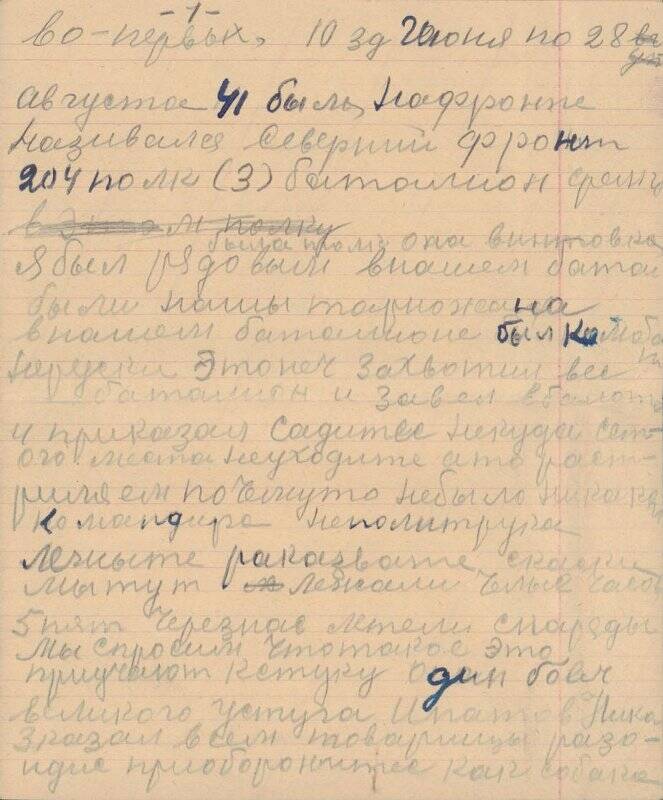 -1-
во-первых, 10 зд июня по 28
августа 41 был, нафронте
называлса Северний фронт
204 полк (3) батальион
в этом полку
была
я был рядовым внашем батал
она винтовка
были нашы
внашем баталионе был ком
Этонеч захватил все
баталион и завел вбалот
и приказал садитес никуда сет
ого места неуходите ато раст
риляем почемуто небыло никак
командира неполитрука
лежыте сказал
мы тут лежали челые часов
5 пят черезнас летели снаряды
мы спросим чтотакое это
приучают кстуку один боец
великого устуга Ипатов Нико
зказал всем товарищы разо-
идис приоборонятес как собака